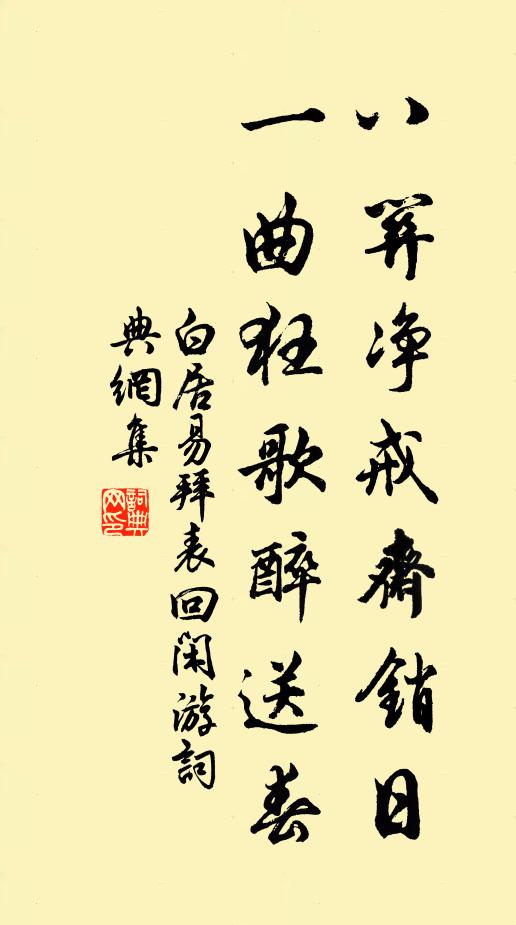 八关净戒齋銷日
一曲狂歌醉送春
白居易拜表回閑游詞
典網集
詞典
网印